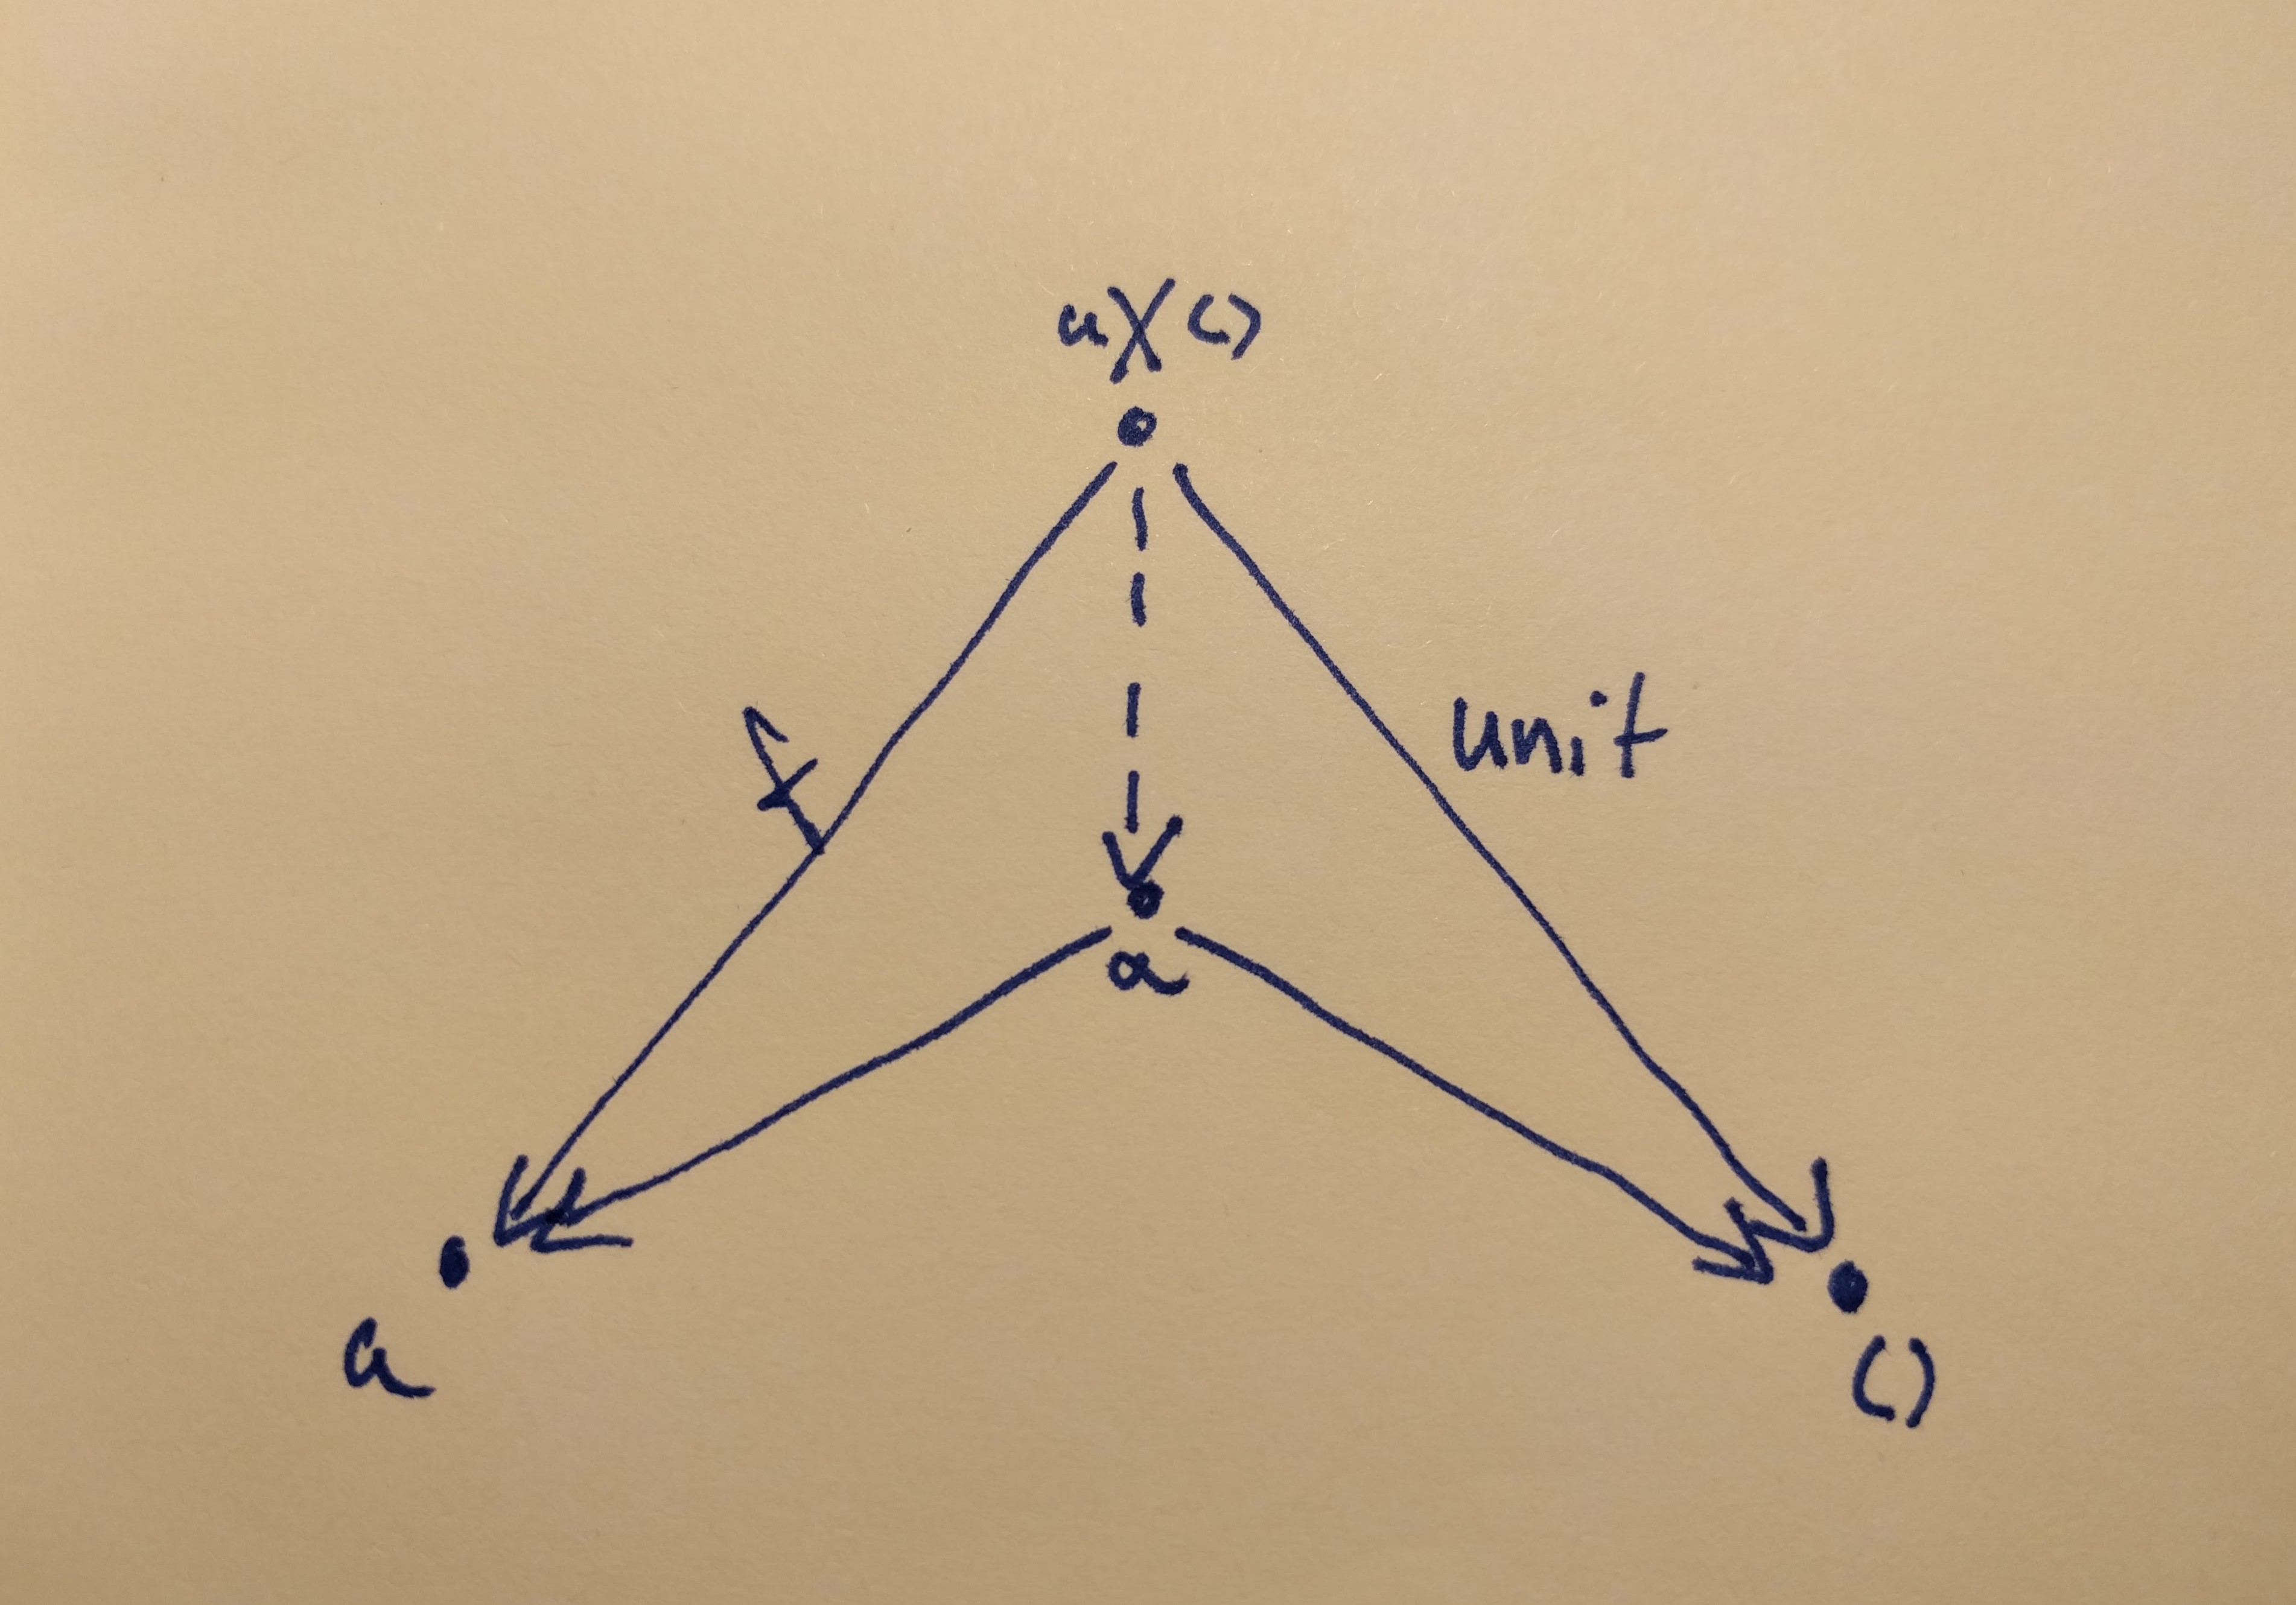 a×()
f
unit
a
a
()